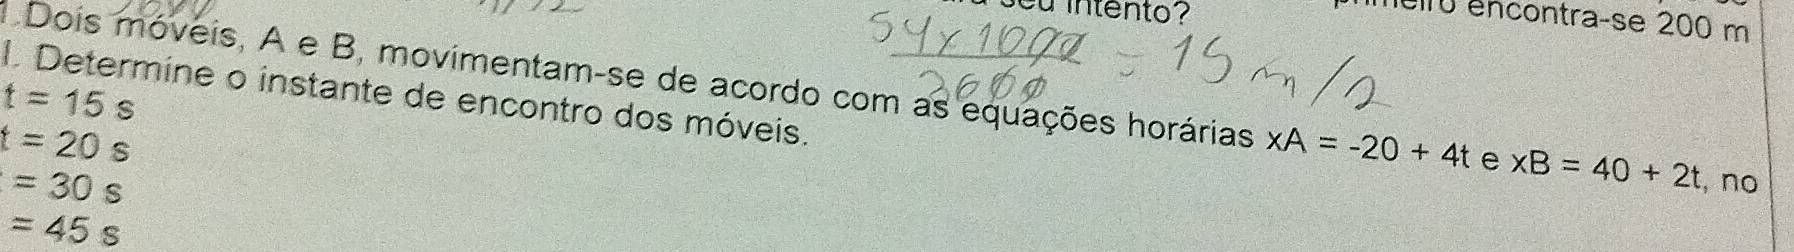 intento?
encontra-se 200 m
54 x 1000 = 15 m/s
3600
1. Dois móveis, A e B, movimentam-se de acordo com as equações horárias xA = -20 + 4t e xB = 40 + 2t, no
I. Determine o instante de encontro dos móveis.
t = 15 s
t = 20 s
= 30 s
= 45 s